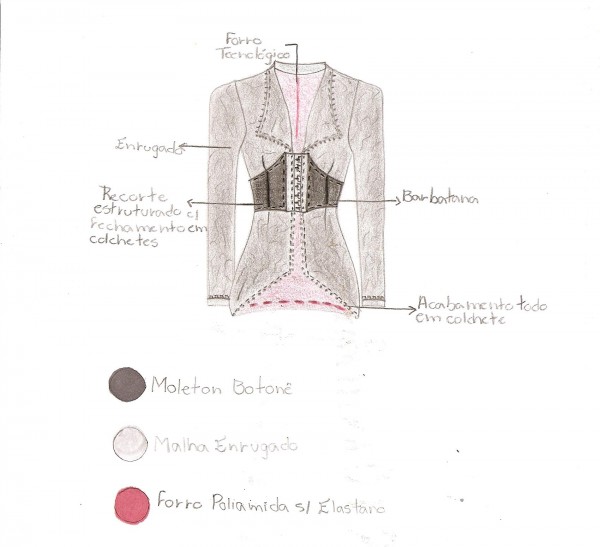 Forro
Tecnológico
Enrugado
Recorte
estruturado c/
fechamento em
colchetes
Barbatana
Acabamento todo
em colchete
Moleton Botonê
Malha Enrugado
Forro Poliamida s/ Elastano